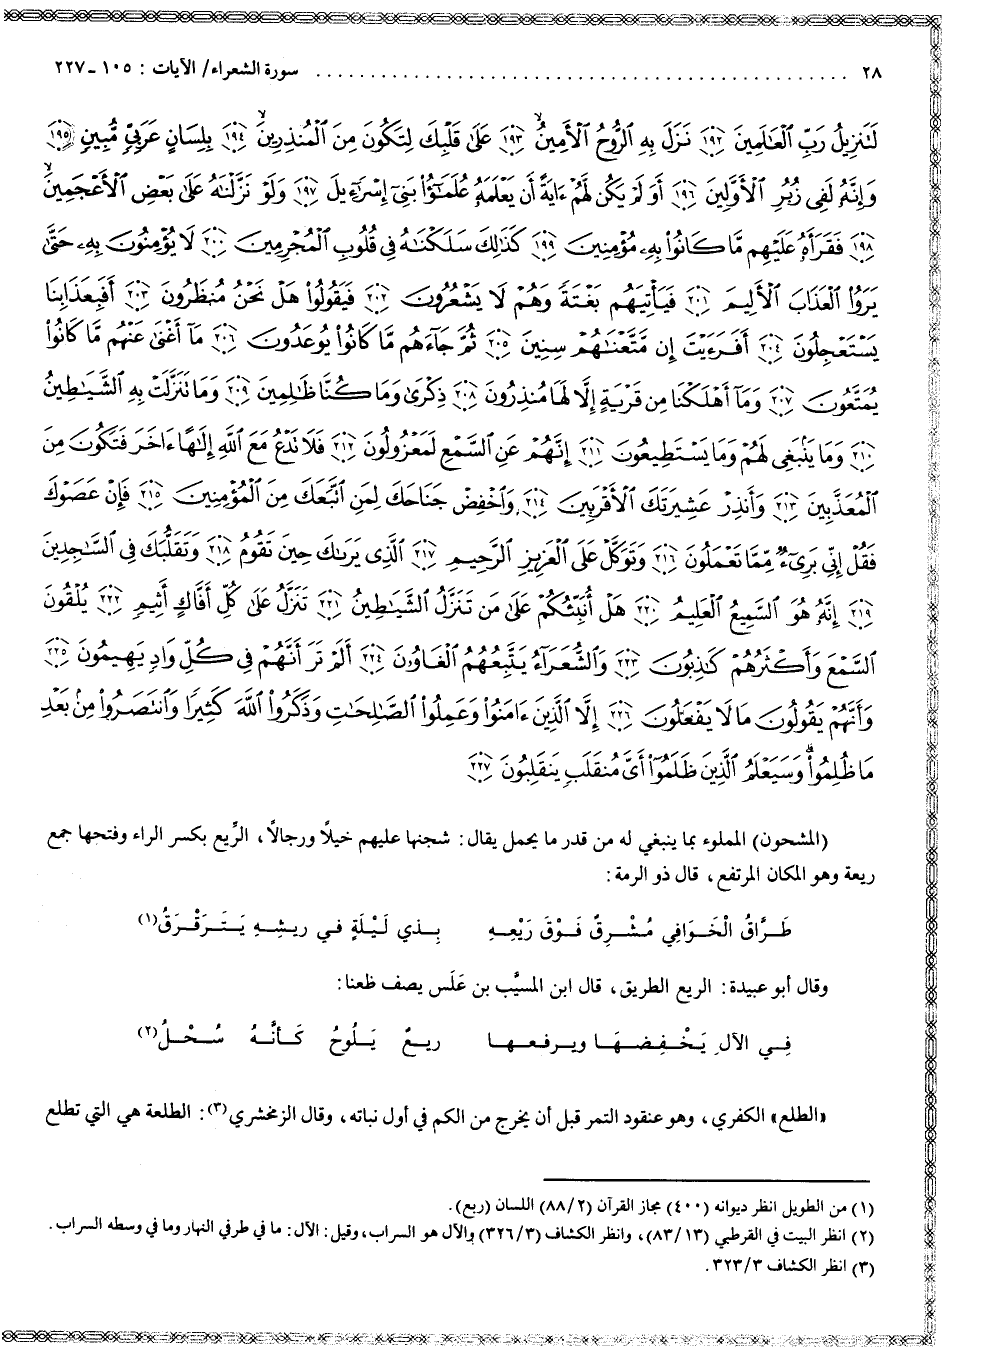 ٢٨ ........................................ سورة الشعراء/ الآيات : ١٠٥ ـ ٢٢٧
لَنَنزِيلُ رَبِّ الْعَالَمِينَ ﴿١٩٢﴾ نَزَلَ بِهِ الرُّوحُ الْأَمِينُ ﴿١٩٣﴾ عَلَى قَلْبِكَ لِتَكُونَ مِنَ الْمُنذِرِينَ ﴿١٩٤﴾ بِلِسَانٍ عَرَبِيٍّ مُّبِينٍ ﴿١٩٥﴾
وَإِنَّهُ لَفِي زُبُرِ الْأَوَّلِينَ ﴿١٩٦﴾ أَوَلَمْ يَكُن لَّهُمْ ءَايَةً أَن يَعْلَمَهُ عُلَمَٰٓؤُا۟ بَنِي إِسْرَٰٓءِيلَ ﴿١٩٧﴾ وَلَوْ نَزَّلْنَاهُ عَلَى بَعْضِ الْأَعْجَمِينَ
﴿١٩٨﴾ فَقَرَأَهُ عَلَيْهِم مَّا كَانُوا بِهِ مُؤْمِنِينَ ﴿١٩٩﴾ كَذَٰلِكَ سَلَكْنَاهُ فِي قُلُوبِ الْمُجْرِمِينَ ﴿٢٠٠﴾ لَا يُؤْمِنُونَ بِهِ حَتَّى
يَرَوُا الْعَذَابَ الْأَلِيمَ ﴿٢٠١﴾ فَيَأْتِيَهُم بَغْتَةً وَهُمْ لَا يَشْعُرُونَ ﴿٢٠٢﴾ فَيَقُولُوا هَلْ نَحْنُ مُنظَرُونَ ﴿٢٠٣﴾ أَفَبِعَذَابِنَا
يَسْتَعْجِلُونَ ﴿٢٠٤﴾ أَفَرَءَيْتَ إِن مَّتَّعْنَاهُمْ سِنِينَ ﴿٢٠٥﴾ ثُمَّ جَاءَهُم مَّا كَانُوا يُوعَدُونَ ﴿٢٠٦﴾ مَا أَغْنَى عَنْهُم مَّا كَانُوا
يُمَتَّعُونَ ﴿٢٠٧﴾ وَمَا أَهْلَكْنَا مِن قَرْيَةٍ إِلَّا لَهَا مُنذِرُونَ ﴿٢٠٨﴾ ذِكْرَى وَمَا كُنَّا ظَالِمِينَ ﴿٢٠٩﴾ وَمَا تَنَزَّلَتْ بِهِ الشَّيَاطِينُ
﴿٢١٠﴾ وَمَا يَنبَغِي لَهُمْ وَمَا يَسْتَطِيعُونَ ﴿٢١١﴾ إِنَّهُمْ عَنِ السَّمْعِ لَمَعْزُولُونَ ﴿٢١٢﴾ فَلَا نَدْعُ مَعَ اللَّهِ إِلَٰهًا ءَاخَرَ فَتَكُونَ مِنَ
الْمُعَذَّبِينَ ﴿٢١٣﴾ وَأَنذِرْ عَشِيرَتَكَ الْأَقْرَبِينَ ﴿٢١٤﴾ وَاخْفِضْ جَنَاحَكَ لِمَنِ اتَّبَعَكَ مِنَ الْمُؤْمِنِينَ ﴿٢١٥﴾ فَإِنْ عَصَوْكَ
فَقُلْ إِنِّي بَرِيءٌ مِّمَّا تَعْمَلُونَ ﴿٢١٦﴾ وَتَوَكَّلْ عَلَى الْعَزِيزِ الرَّحِيمِ ﴿٢١٧﴾ الَّذِي يَرَاكَ حِينَ تَقُومُ ﴿٢١٨﴾ وَتَقَلُّبَكَ فِي السَّاجِدِينَ
﴿٢١٩﴾ إِنَّهُ هُوَ السَّمِيعُ الْعَلِيمُ ﴿٢٢٠﴾ هَلْ أُنَبِّئُكُمْ عَلَى مَن تَنَزَّلُ الشَّيَاطِينُ ﴿٢٢١﴾ تَنَزَّلُ عَلَى كُلِّ أَفَّاكٍ أَثِيمٍ ﴿٢٢٢﴾ يُلْقُونَ
السَّمْعَ وَأَكْثَرُهُمْ كَاذِبُونَ ﴿٢٢٣﴾ وَالشُّعَرَاءُ يَتَّبِعُهُمُ الْغَاوُونَ ﴿٢٢٤﴾ أَلَمْ تَرَ أَنَّهُمْ فِي كُلِّ وَادٍ يَهِيمُونَ ﴿٢٢٥﴾
وَأَنَّهُمْ يَقُولُونَ مَا لَا يَفْعَلُونَ ﴿٢٢٦﴾ إِلَّا الَّذِينَ ءَامَنُوا وَعَمِلُوا الصَّالِحَاتِ وَذَكَرُوا اللَّهَ كَثِيرًا وَانتَصَرُوا مِن بَعْدِ
مَا ظُلِمُوا وَسَيَعْلَمُ الَّذِينَ ظَلَمُوا أَيَّ مُنقَلَبٍ يَنقَلِبُونَ ﴿٢٢٧﴾
(المشحون) المملوء بما ينبغي له من قدر ما يحمل يقال : شجنها عليهم خيلًا ورجالًا، الرِّيع بكسر الراء وفتحها جمع
ريعة وهو المكان المرتفع، قال ذو الرمة :
طَرَّاقُ الْخَوَافِي مُشْرِقٌ فَوْقَ رَيْعِهِ بِذي لَيْلَةٍ في ريشِهِ يَتَرَقْرَقُ(١)
وقال أبو عبيدة : الريع الطريق، قال ابن المسيَّب بن عَلَس يصف ظعنا :
فِي الآلِ يَخْفِضُهَا ويرفعها ريعٌ يَلُوحُ كَأنَّهُ سُحْلُ(٢)
«الطلع» الكفري، وهو عنقود التمر قبل أن يخرج من الكم في أول نباته، وقال الزمخشري(٣): الطلعة هي التي تطلع
(١) من الطويل انظر ديوانه (٤٠٠) مجاز القرآن (٢/ ٨٨) اللسان (ريع).
(٢) انظر البيت في القرطبي (١٣/ ٨٣)، وانظر الكشاف (٣/ ٣٢٦) والآل هو السراب، وقيل : الآل : ما في طرفي النهار وما في وسطه السراب.
(٣) انظر الكشاف ٣/ ٣٢٣.